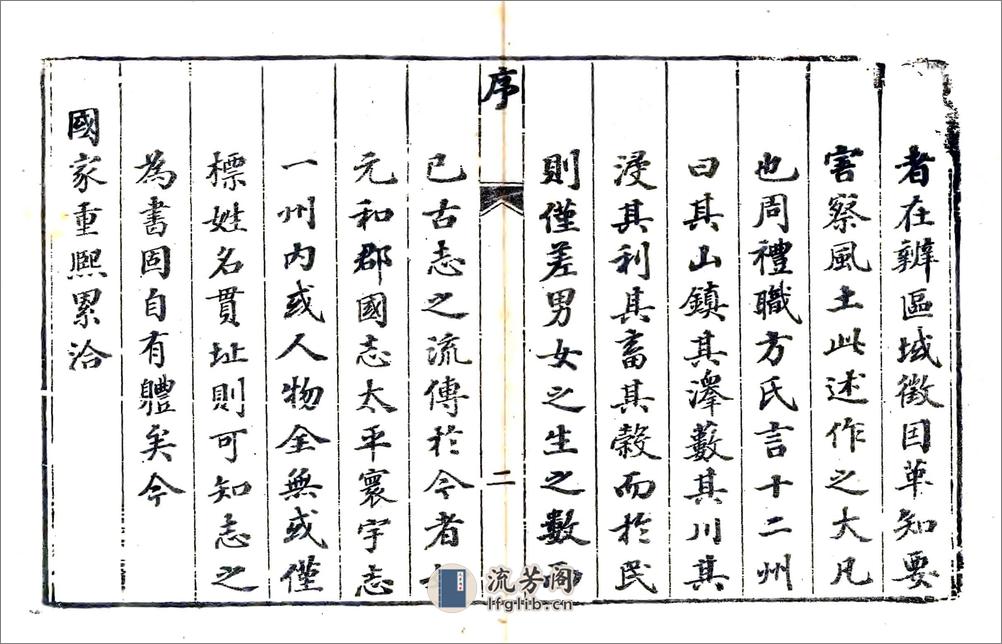 者在辨區域徵因革知要
害察風土此述作之大凡
也周禮職方氏言十二州
曰其山鎮其澤藪其川其
浸其利其畜其穀而於民
則僅差男女之生之數
序
二
已古志之流傳於今者
元和郡國志太平寰宇志
一州內或人物全無或僅
標姓名貫址則可知志之
為書固自有體矣今
國家重熙累洽
流芳阁
lfglib.cn